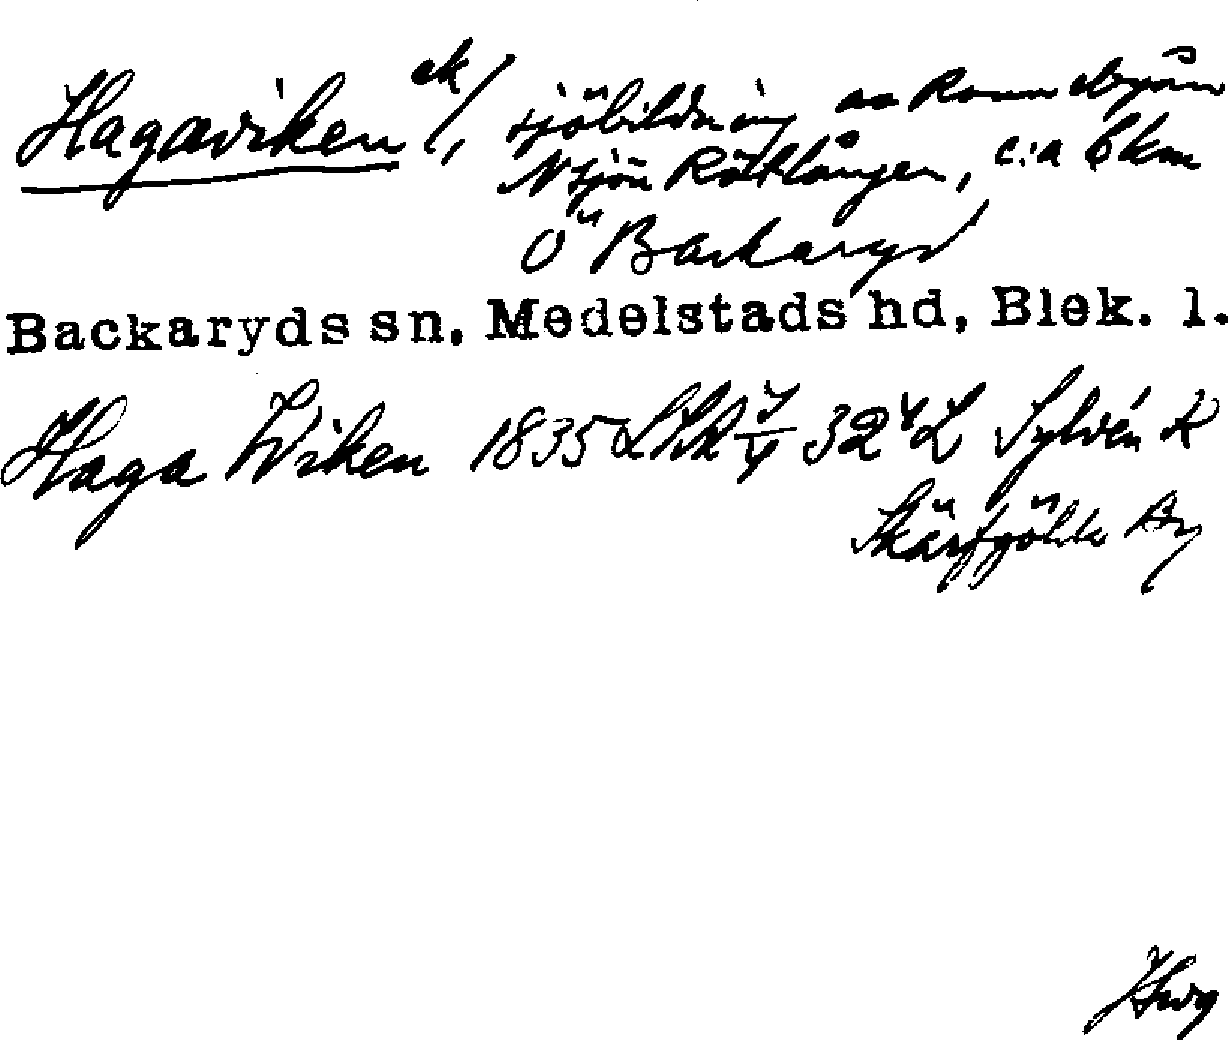 Hagaviken ek/, sjöbildning av Ronnebyån
N sjön Rötlången, c:a 6 km
Ö Backaryd
Backaryds sn, Medelstads hd, Blek. l.
Haga Wiken 1835 LSk 32 L Sylvén K
Skärfgöhle By